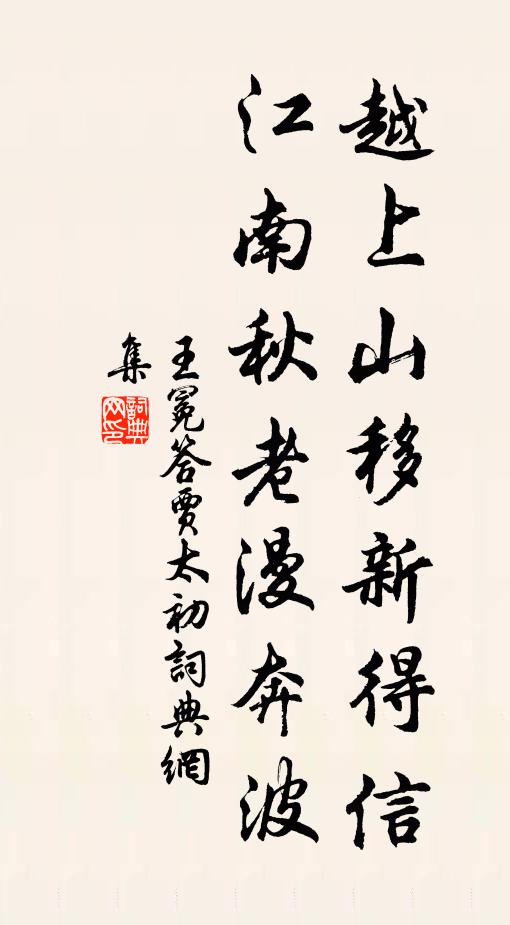 越上山移新得信
江南秋老漫奔波
王冕答賈太初詞典網
集
詞典网印